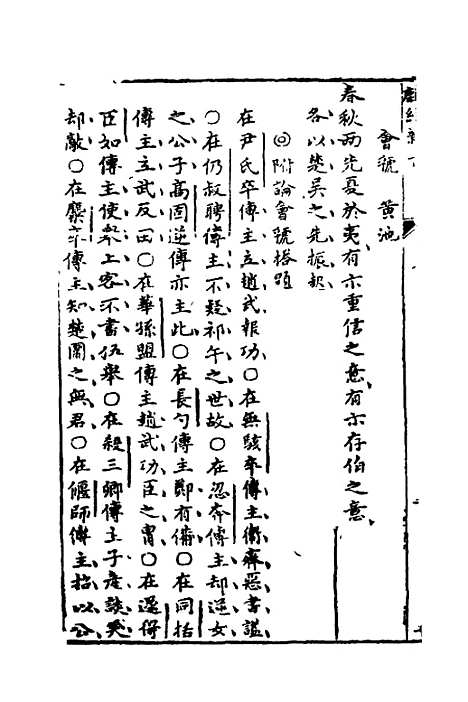 會虢　黃池
春秋兩先夏於夷有示重信之意有示存伯之意
各以楚吳之先振起
◎附論會虢搭題
在尹氏卒傳主立趙武報功○在無駭卒傳主衛齊惡書謚
○在仍叔聘傳主不疑祁午之世故○在忽奔傳主却逆女
之公子高固逆傳亦主此○在長勺傳主鄭有備○在同括
傳主立武反田○在華孫盟傳主趙武功臣之胄○在還傳
臣如傳主使舉上客不書伍舉○在殺三卿傳主子產談笑
却敵○在麇卒傳主知楚圍之無君○在偃師傳主招以公